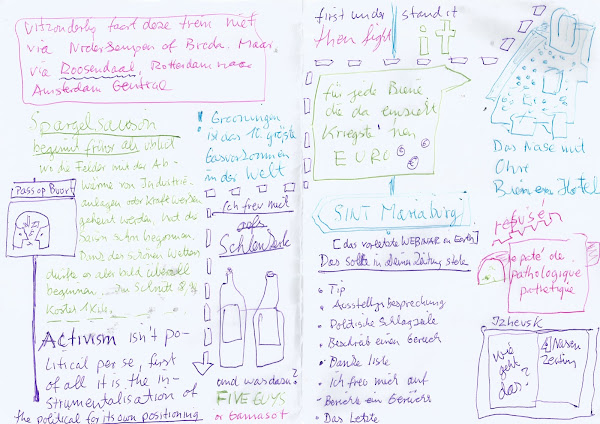 Uitzonderlijk faart deze trein niet
via Niderkempen of Breda. Maar
via Roosendaal, Rotterdam naar
Amsterdam Central
Spargelsaison
beginnt früher als üblich
wo die Felder mit der Ab-
wärme von Industrie-
anlagen oder Kraftwerken
geheizt werden hat die
saison schon begonnen.
Dank des schönen Wetters
dürfte es aber bald überall
beginnen
Kostet 1 Kilo
Pass op Buur
Activism isn't po-
litical per se, first
of all it is the in-
strumentalisation of
the political for its own positioning
Groeningen
ist das 10. größte
Gasvorkommen
in der Welt
Ich freu mich
aufs
Schlendern
und was dazu?
FIVE GUYS
or Gamasot
first under stand it
then fight it
für jede Biene
die da einzieht
kriegste 'nen
EURO
Das Nase mit
Ohne
Bienen Hotel
SINT Mariaburg
[das vorletzte WEBINAR on Earth]
Das sollte in deiner Zeitung stehn
Tip
Ausstellungsbesprechung
Politische Schlagzeile
Beschreib einen Geruch
Danke liste
Ich freu mich auf
Berichte ein Gerücht
Das Letzte
refusér
paté de
pathologique
pathetique
Izhevsk
Wie
geht
das?
4 Nasen
Zeitung